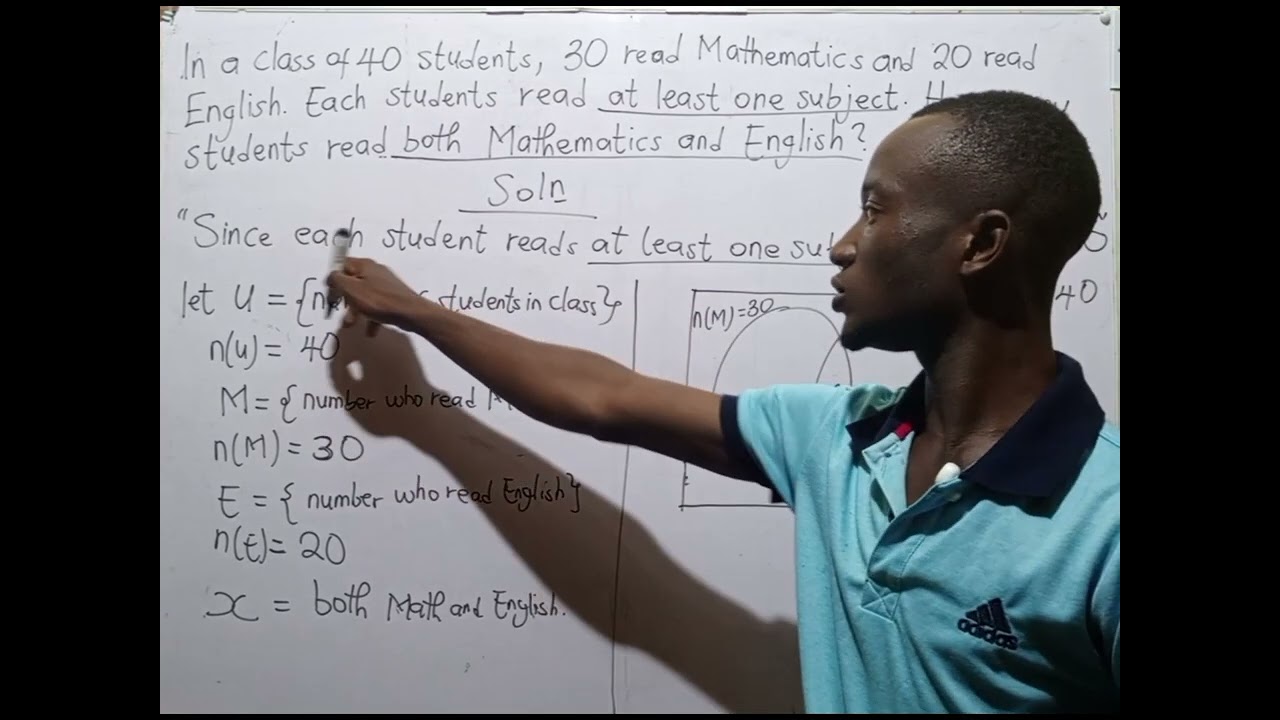 In a class of 40 students, 30 read Mathematics and 20 read
English. Each students read at least one subject.
students read both Mathematics and English?
Soln
"Since each student reads at least one
let U = { students in class}
n(u) = 40
M = { number who read
n(M) = 30
E = { number who read English}
n(E) = 20
x = both Math and English.
n(M) = 30
40
adidas